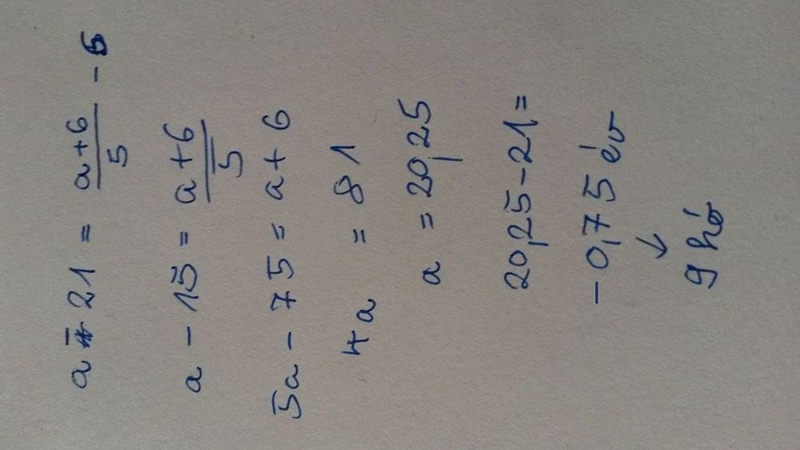 a - 21 = (a+6)/5 - 6
a - 15 = (a+6)/5
5a - 75 = a + 6
4a = 81
a = 20,25
20,25 - 21 =
- 0,75 év
↓
9 hó